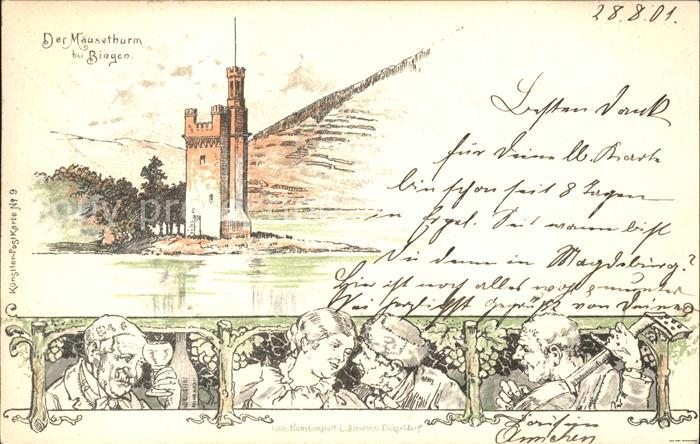 28.8.01.
Der Mäusethurm
bei Bingen.
Besten Dank
für Deine lb. Karte
bin schon seit 8 Tagen
in Seit wann bist
Du denn in Magdeburg?
Hier ist noch alles wohl u. munter
Sei herzlichst gegrüßt von Deiner
Künstler-Postkarte No 9
Lith. Kunstanstalt L. Schwann, Düsseldorf